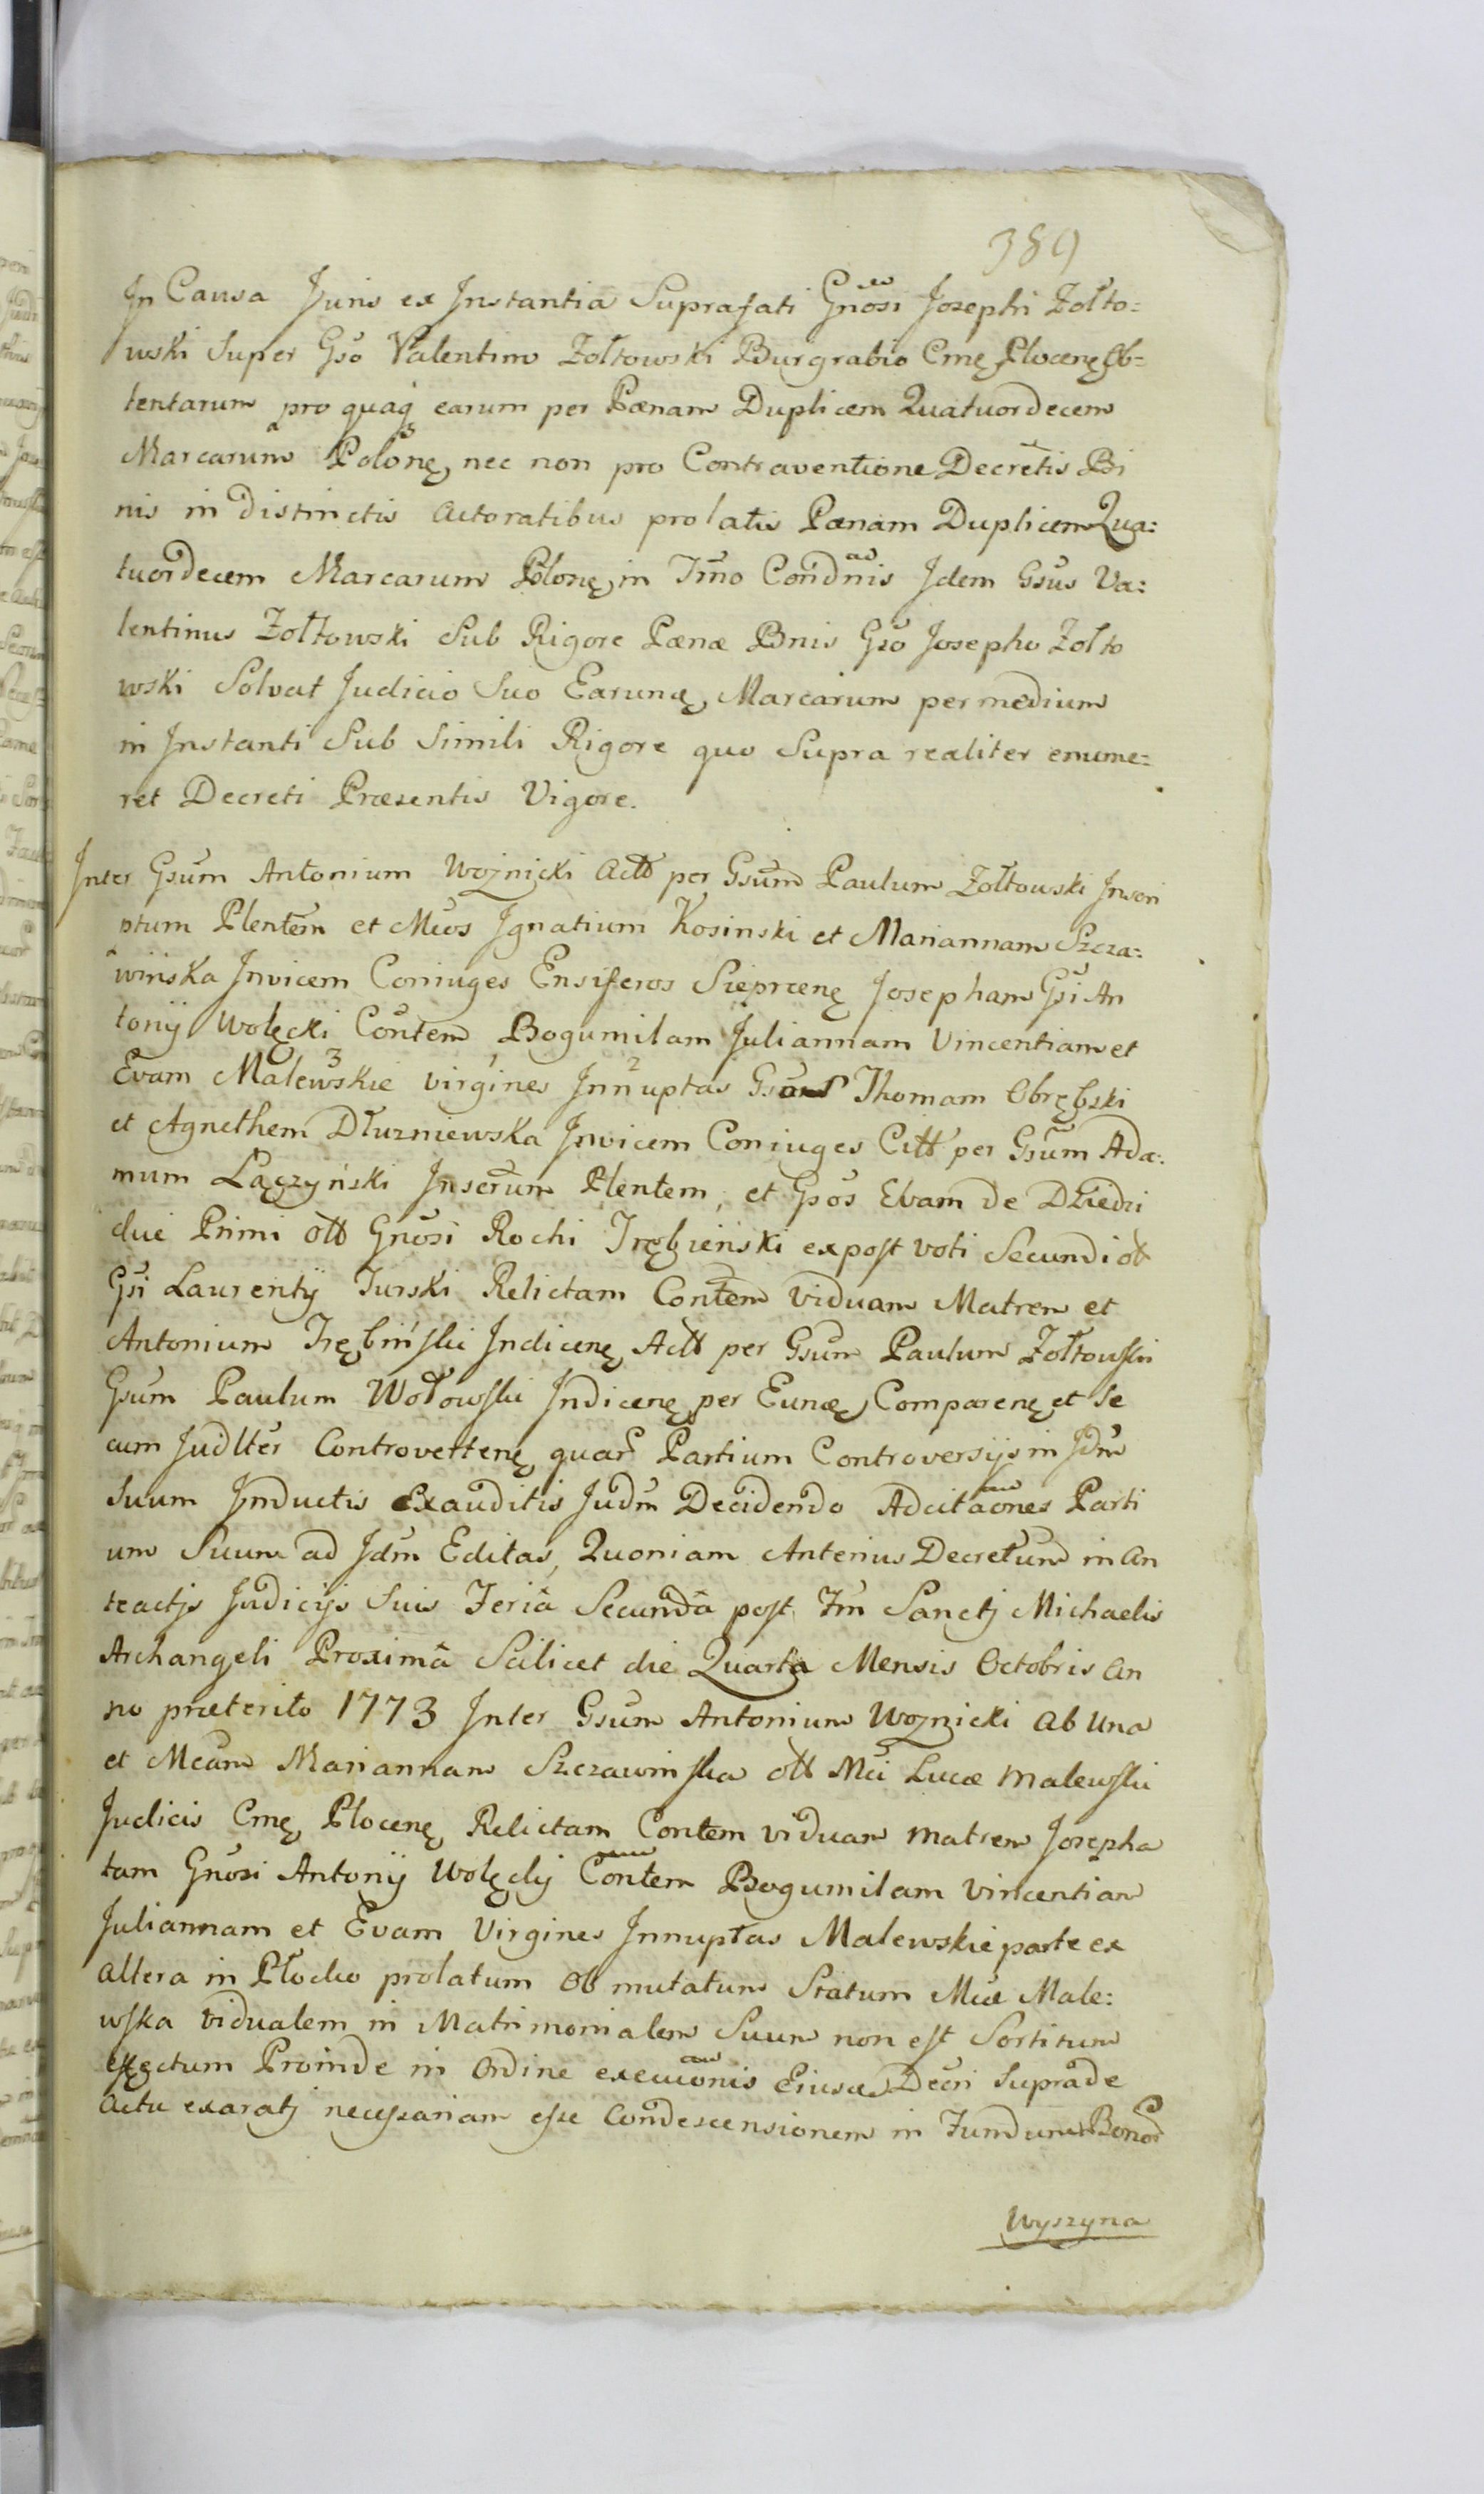 389
In Causa Juris ex Instantia Suprafati Gnosi Josephi Zołto=
wski Super Gso Valentino Zołtowski Burgrabio Cmę Plocenę Ob=
tentarum pro quaq earum per Pœnam Duplicem Quatuordecem
Marcarum Polonę, nec non pro Contraventione Decretis Bi
nis in distinctis Actoratibus prolatis Pœnam Duplicem Qua:
tuordecem Marcarum Polonę, in Tmo Condnis Idem Gsus Va:
lentinus Zołtowski Sub Rigore Pœnæ Bnis Gso Josepho Zolto
wski Solvat Judicio Suo Earundę, Marcarum per medium
in Instanti Sub Simili Rigore quo Supra realiter enume=
ret Decreti Præsentis Vigore.
Inter Gsum Antonium Woznicki Actt per Gsum Paulum Zołtowski Inscri
ptum Plentem et Mcos Ignatium Kosinski et Mariannam Szcza:
wińska Invicem Coniuges Ensiferos Sieprcenę Josepham Gsi An
tonij Wolęcki Contem Bogumilam Juliannam Vincentiam et
Evam Malewskie 3 virgines 1 Innuptas 2 Thomam Obrębski
et Agnethem Dłuzniewska Invicem Coniuges Citt per Gsum Ada:
mum Lączyński Inserum Plentem, et Gsos Evam de Dziedzi
Primi ott Gnosi Rochi Trębieński expost voti Secundi ott
Gsi Laurentij Turski Relictam Contem Viduam Matrem et
Antonium Trębiński Indicenę Actt per Gsum Paulum Zołtowski
Gsum Paulum Wołowski Indicenę per Eundę, Comparenę et Se
cum Judlter Controvertenę, quar Partium Controversijs in Jdm
Suum Inductis Exauditis Judm Decidendo Adcitaones Parti
um Suum ad Jdm Editas, Quoniam Anterius Decretum in An
teactjs Judicijs Suis Feriâ Secundâ post Fm Sanctj Michaelis
Archangeli Proximâ Scilicet die Quarta Mensis Octobris An
no præterito 1773 Inter Gsum Antonium Woznicki Ab Una
et Mcam Mariannam Szczawinska ott Mci Lucæ Malewski
Judicis Cmę Plocenę Relictam Contem viduam matrem Josepha
tam Gnosi Antonij Wolęckj Contem Bogumilam Vincentiam
Juliannam et Evam Virgines Innuptas Malewskie parte ex
altera in Płocko prolatum Ob mutatum Statum Mcæ Male:
wska vidualem in Matrimonialem Suum non est Sortitum
effectum Proinde in Ordine execuonis Eiusdę, Decri Suprade
Actu exaratj necessariam esse Condescensionem in Fundum Bonor
Wyszyna